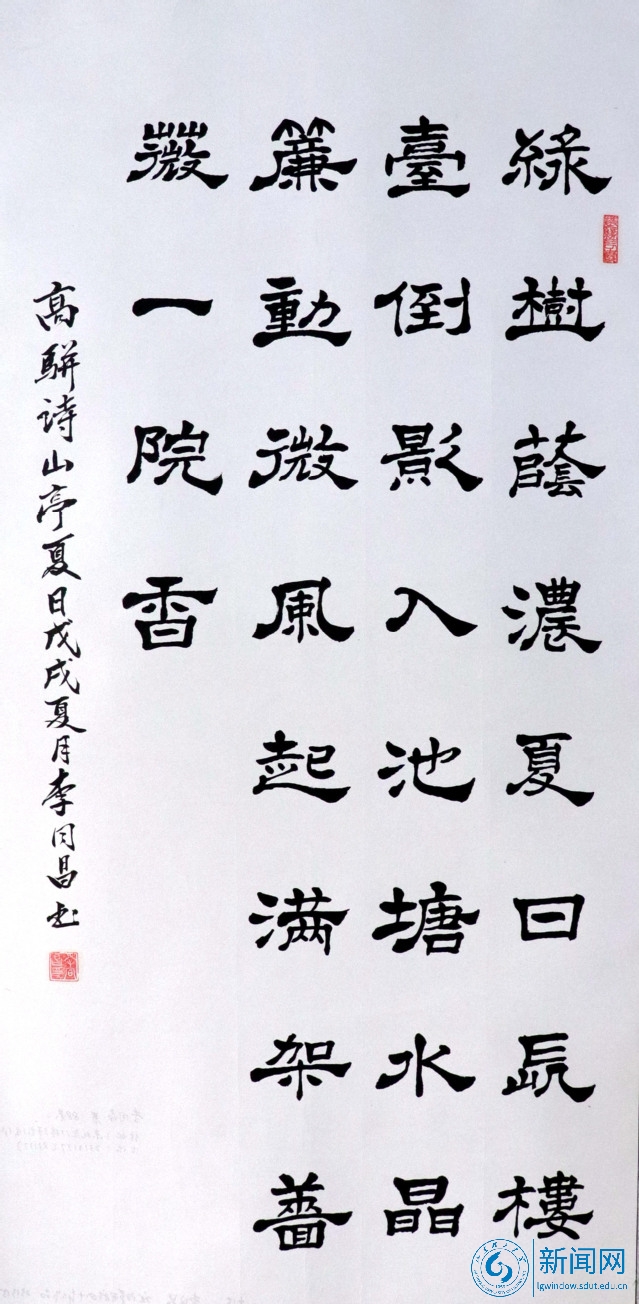 綠樹蔭濃夏日長樓
臺倒影入池塘水晶
簾動微風起满架薔
薇一院香
高駢诗山亭夏日戊戌夏月李同昌书
新闻网
lgwindow.sdut.edu.cn